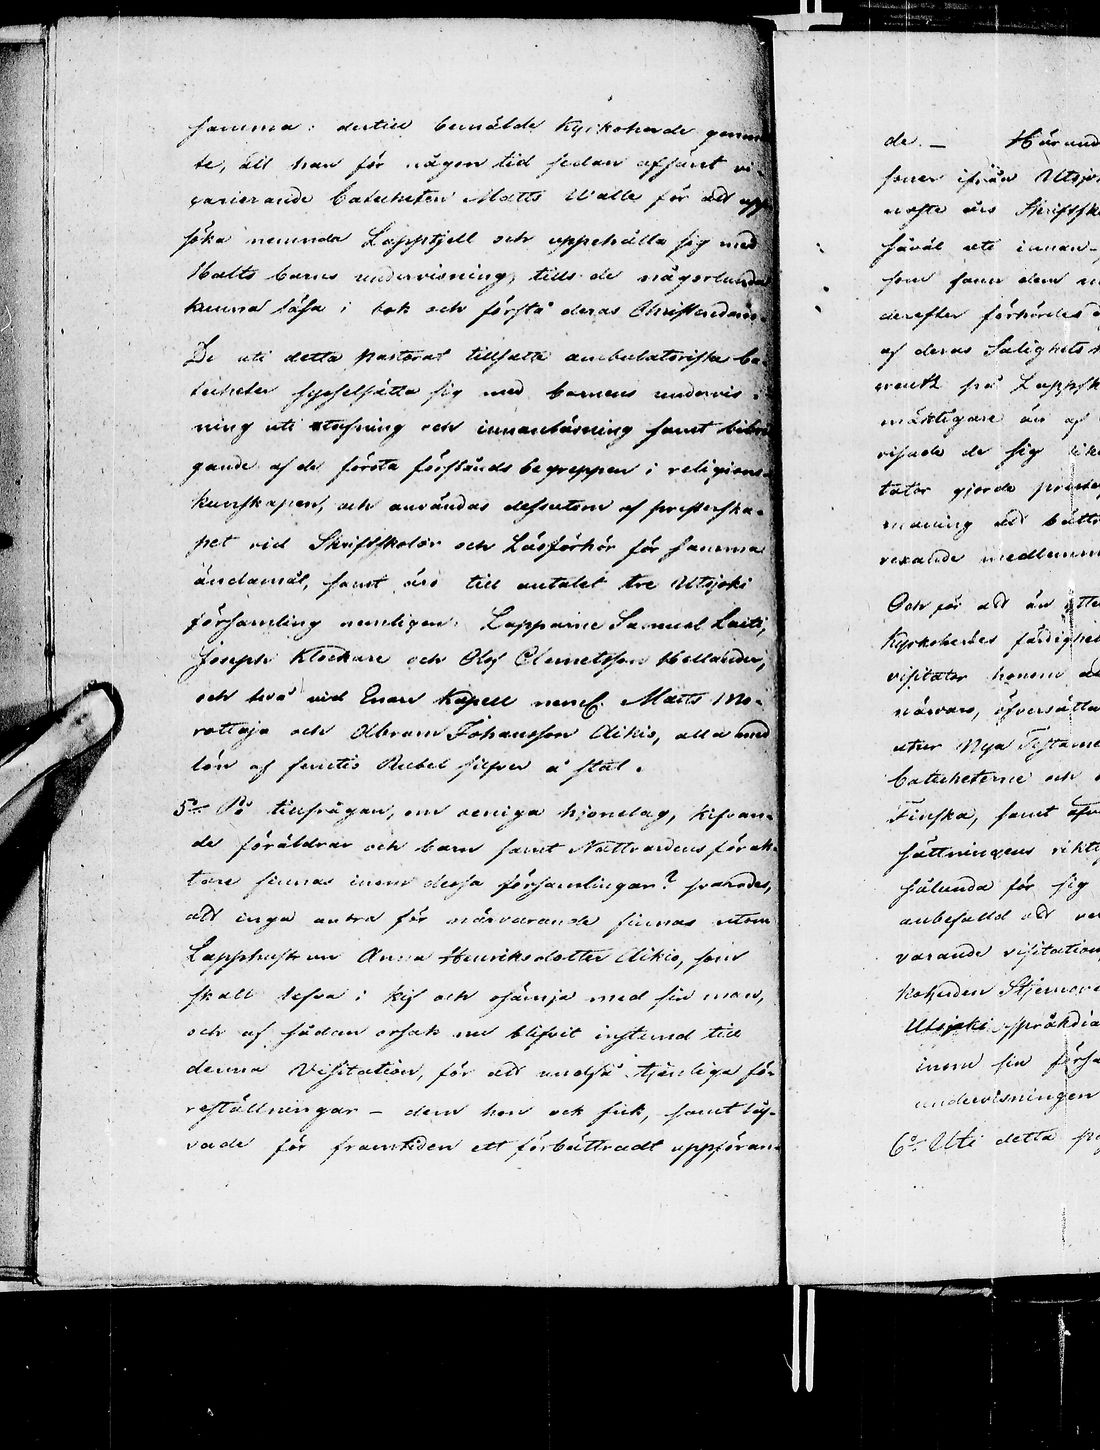 samma: dertill bemälde Kyrkoherde genmäl-
te, att han för någon tid sedan afsänt vi-
carierande Catecheten Matts Walle för att upp-
söka nemnda Lappfjell och uppehålla sig med
Hälts barns undervisning, tills de någorlunda
kunna läsa i bok och förstå deras Christendom.
De uti detta pastorat tillsatte ambulatoriska Ca-
techeter sysselsätta sig med barnens undervis-
ning uti stafning och innanläsning samt bibrin-
gande af de första förstånds begreppen i religions-
kunskapen, och användas dessutom af presterska-
pet vid Skriftskolor och Läsförhör för samma
ändamål, samt äro till antalet tre Utsjoki
församling nemligen: Lapparne Samuel Laiti,
Joseph Klockare och Olof Clemetsson Hellander,
och två vid Enare Kapell neml. Matts Mo-
rottaja och Abram Johansson Aikio, alla med
lön af femtio Rubel silfver å stat.
5:o På tillfrågan, om oeniga hjonelag, kifvan-
de föräldrar och barn samt Nattvardens förak-
tare finnas inom dessa församlingar? svarades,
att inga andra för närvarande finnas utom
Lapphustrun Anna Henriksdotter Aikio, som
skall lefva i kif och osämja med sin man,
och af sådan orsak nu blifvit instemd till
denna Visitation, för att undfå tjenliga fö-
reställningar – dem hon ock fick, samt löf-
vade för framtiden ett förbättradt uppföran-
de. – Härund
soner ifrån Utsjok
näste års Skriftsk
såväl uti innan-
som
derefter förhördes
af deras Salighets
på Lappsk
mäktigare än af
visade de sig
tator gjorde
maning att bättr
vexande medlemm
Och för att än
Kyrkoherdes färdighet
visitator honom
närvaro, öfversätta
utur Nya Testame
Catecheterne och
Finska, samt
sättningens rikti
sålunda för sig
anbefalld att
varande visitation
koherden Stjernva
Utsjoki språkdia
inom sin förs
undervisningen
6:o Uti detta